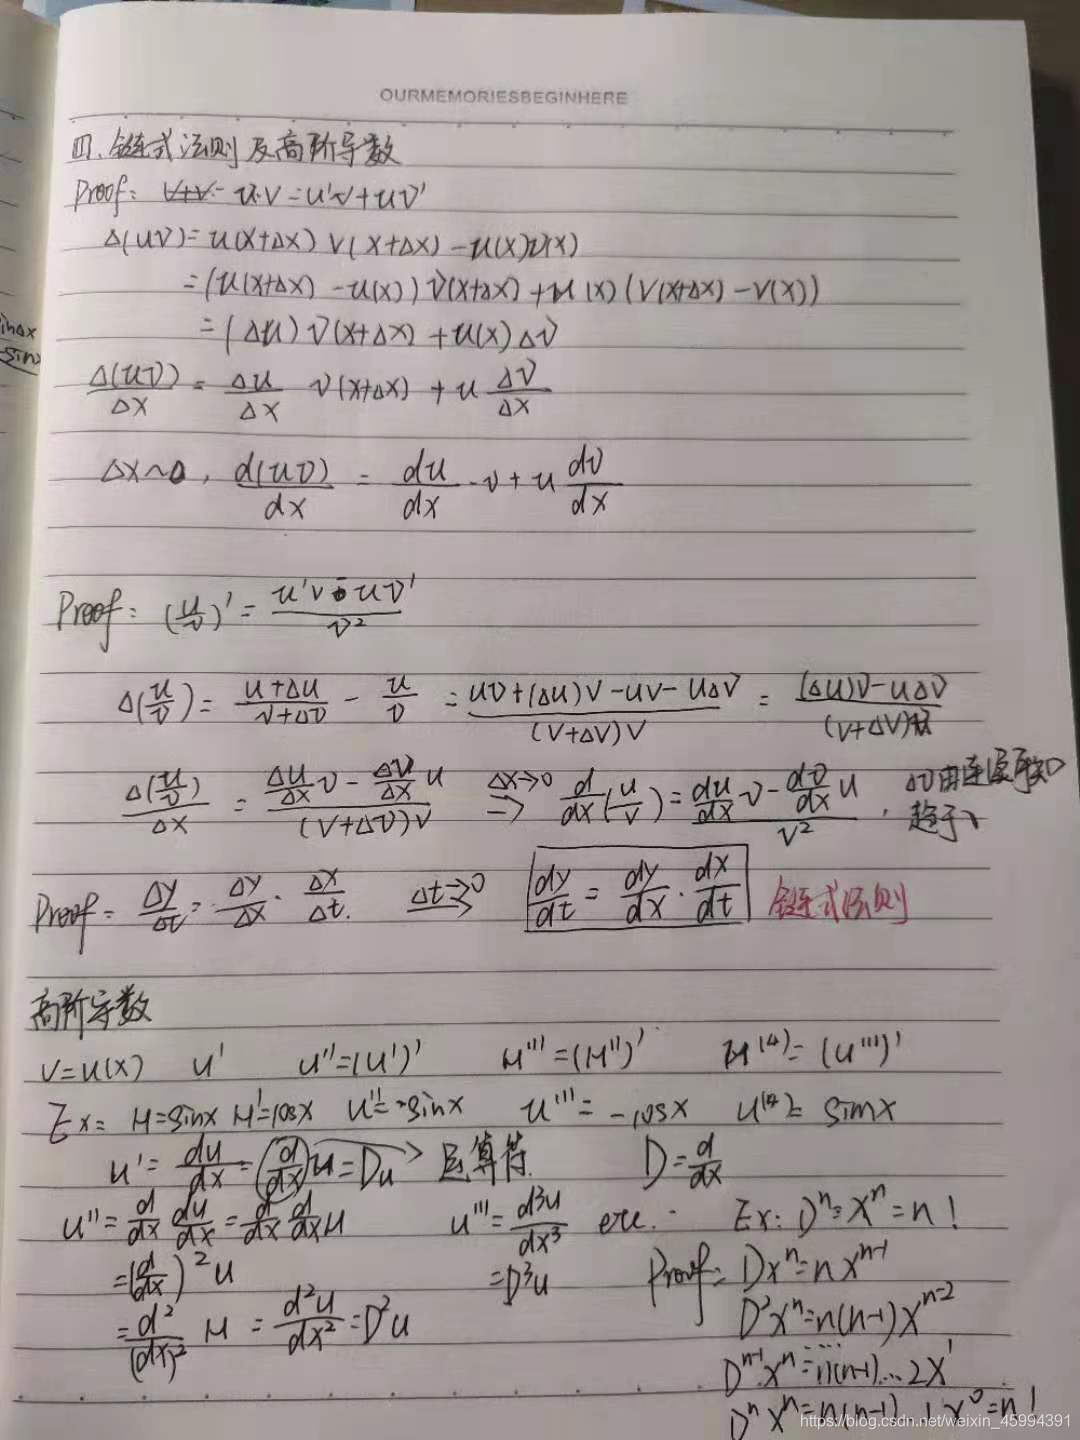 OURMEMORIESBEGINHERE
四、链式法则及高阶导数
Proof: u·v=u'v+uv'
Δ(uv)=u(x+Δx)v(x+Δx)-u(x)v(x)
=(u(x+Δx)-u(x))v(x+Δx)+u(x)(v(x+Δx)-v(x))
=(Δu)v(x+Δx)+u(x)Δv
Δ(uv)/Δx = Δu/Δx v(x+Δx)+u Δv/Δx
Δx~0, d(uv)/dx = du/dx·v+u dv/dx
Proof: (u/v)'= (u'v-uv')/v²
Δ(u/v)= (u+Δu)/(v+Δv) - u/v = (uv+(Δu)v-uv-uΔv)/((v+Δv)v) = ((Δu)v-uΔv)/((v+Δv)v)
Δ(u/v)/Δx = (Δu/Δx v - Δv/Δx u)/((v+Δv)v) Δx→0 ⇒ d/dx(u/v)= (du/dx v - dv/dx u)/v², Δv由连续可知
趋于
Proof= Δy/Δt = Δy/Δx · Δx/Δt. Δt→0 dy/dt = dy/dx · dx/dt 链式法则
高阶导数
v=u(x) u' u''=(u')' u'''=(u'')' u⁽⁴⁾=(u''')'
Ex= u=sinx u'=cosx u''=-sinx u'''=-cosx u⁽⁴⁾= sinx
u'= du/dx = (d/dx)u=Du 运算符. D= d/dx
u''= d/dx du/dx = d/dx d/dx u u'''= d³u/dx³ etc. Ex: Dⁿ=xⁿ=n!
=(d/dx)²u =D³u Proof= Dxⁿ=nxⁿ⁻¹
= d²/(dx)² u = d²u/dx² =D²u D²xⁿ=n(n-1)xⁿ⁻²
....
Dⁿ⁻¹xⁿ=n(n-1)...2x¹
Dⁿxⁿ=n(n-1)...1x⁰=n!
https://blog.csdn.net/weixin_45994391